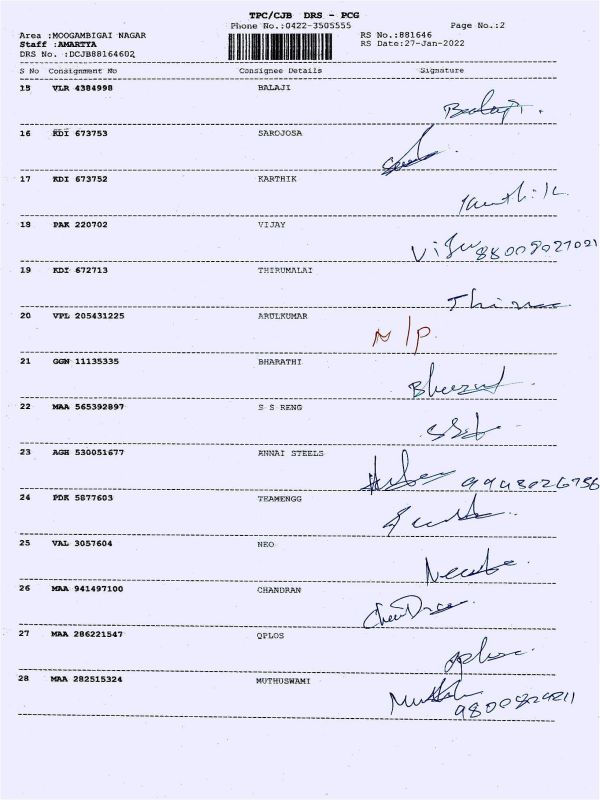 TPC/CJB DRS - PCG
Phone No.:0422-3505555 Page No.:2
Area :MOOGAMBIGAI NAGAR RS No.:881646
Staff :AMARTYA RS Date:27-Jan-2022
DRS No. :DCJB88164602
S No Consignment No Consignee Details Signature
15 VLR 4384998 BALAJI
16 KDI 673753 SAROJOSA
17 KDI 673752 KARTHIK
18 PAK 220702 VIJAY
19 KDI 672713 THIRUMALAI
20 VPL 205431225 ARULKUMAR N/P
21 GGN 11135335 BHARATHI
22 MAA 565392897 S S RENG
23 AGH 530051677 ANNAI STEELS
24 PDK 5877603 TEAMENGG
25 VAL 3057604 NEO
26 MAA 941497100 CHANDRAN
27 MAA 286221547 QPLOS
28 MAA 282515324 MUTHUSWAMI